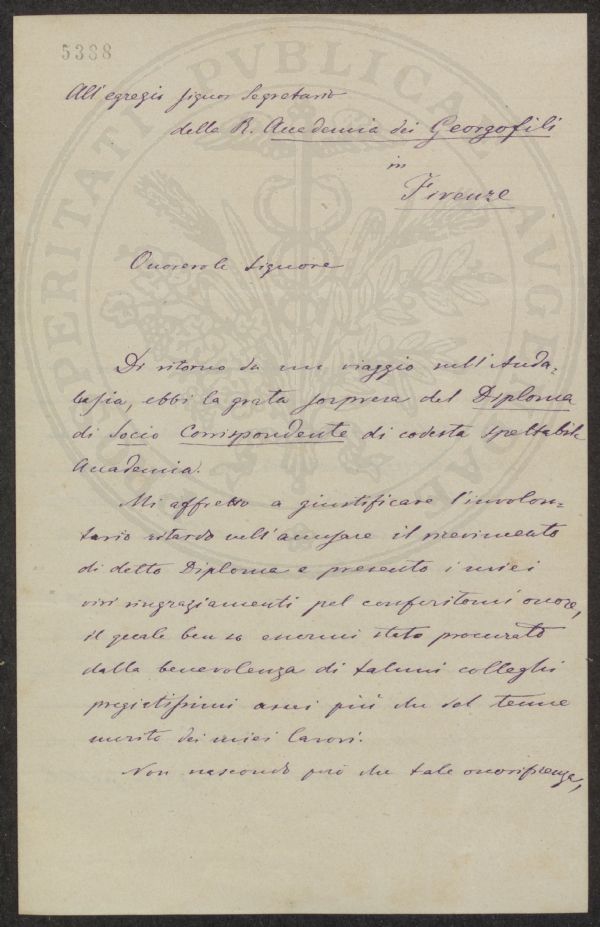 5388
All'egregio signor Segretario
della R. Accademia dei Georgofili
in
Firenze
Onorevole signore
Di ritorno da un viaggio nell'Anda-
lusia, ebbi la grata sorpresa del Diploma
di Socio Corrispondente di codesta spettabile
Accademia.
Mi affretto a giustificare l'involon=
tario ritardo nell'accusare il ricevimento
di detto Diploma e presento i miei
vivi ringraziamenti pel conferitomi onore,
il quale ben so essermi stato procurato
dalla benevolenza di taluni colleghi
pregiatissimi assai più che dal tenue
merito dei miei lavori.
Non nascondo però che tale onorificenza,
PROSPERITATI PVBLICAE AVGENDAE